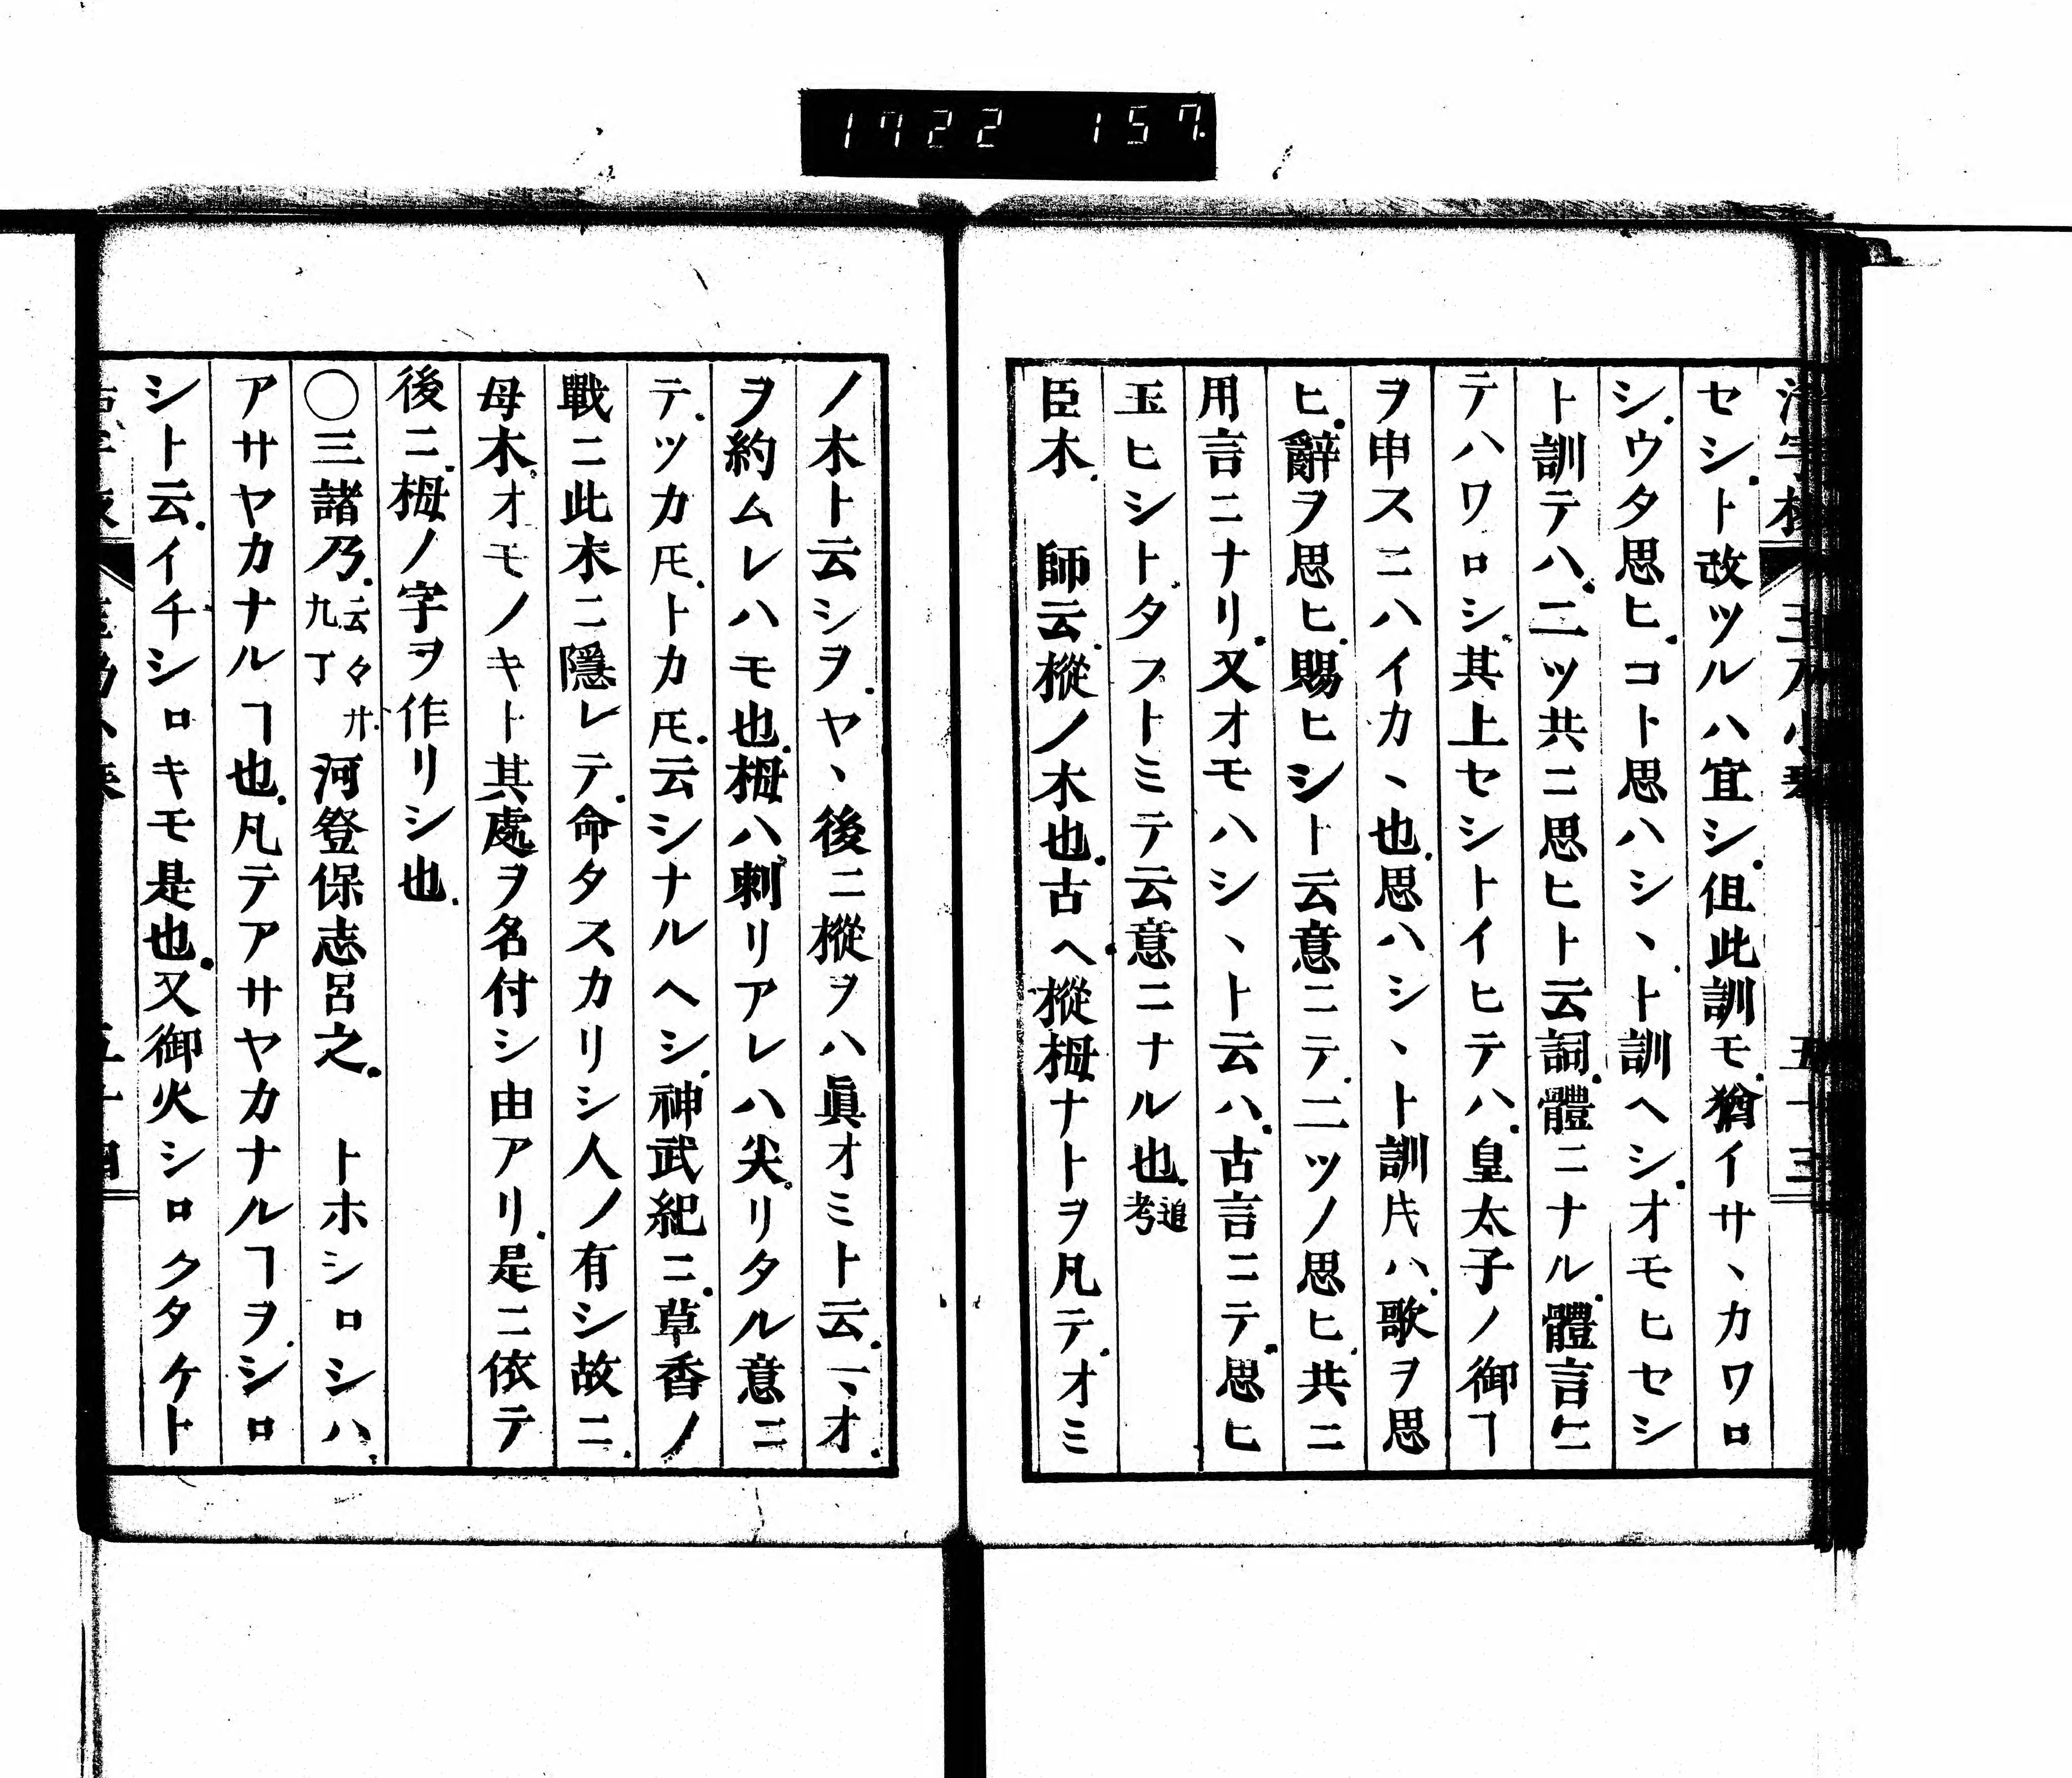 1722 157
セシ、ト改ツルハ宜シ、但此訓モ、猶イサヽカワロ
シ、ウタ思ヒ、コト思ハシヽト訓ヘシ、オモヒセシ
ト訓テハ、二ツ共ニ思ヒト云詞、體ニナル、體言ニ
テハワロシ、其上セシトイヒテハ、皇太子ノ御ヿ
ヲ申スニハイカヽ也、思ハシヽト訓片ハ、歌ヲ思
ヒ、辭ヲ思ヒ、賜ヒシト云意ニテ、二ツノ思ヒ、共ニ
用言ニナリ、又オモハシヽト云ハ、古言ニテ、思ヒ
玉ヒシト、タフトミテ云意ニナル也、追考
臣木、 師云、樅ノ木也、古ヘ、樅栂ナトヲ凡テ、オミ
ノ木ト云シヲ、ヤヽ後ニ樅ヲハ眞オミト云、
ヲ約ムレハモ也、栂ハ、刺リアレハ尖リタル意ニ
テ、ツカ𪜈、トカ𪜈、云シナルヘシ、神武紀ニ、草香ノ
戰ニ此木ニ隱レテ、命タスカリシ人ノ有シ故ニ、
母木、オモノキト其處ヲ名付シ由アリ、是ニ依テ
後ニ、栂ノ字ヲ作リシ也、
〇三諸乃、云々 廾九丁 河登保志呂之、 トホシロシハ、
アサヤカナルヿ也、凡テアサヤカナルヿヲ、シロ
シト云、イチシロキモ是也、又御火シロクタケト